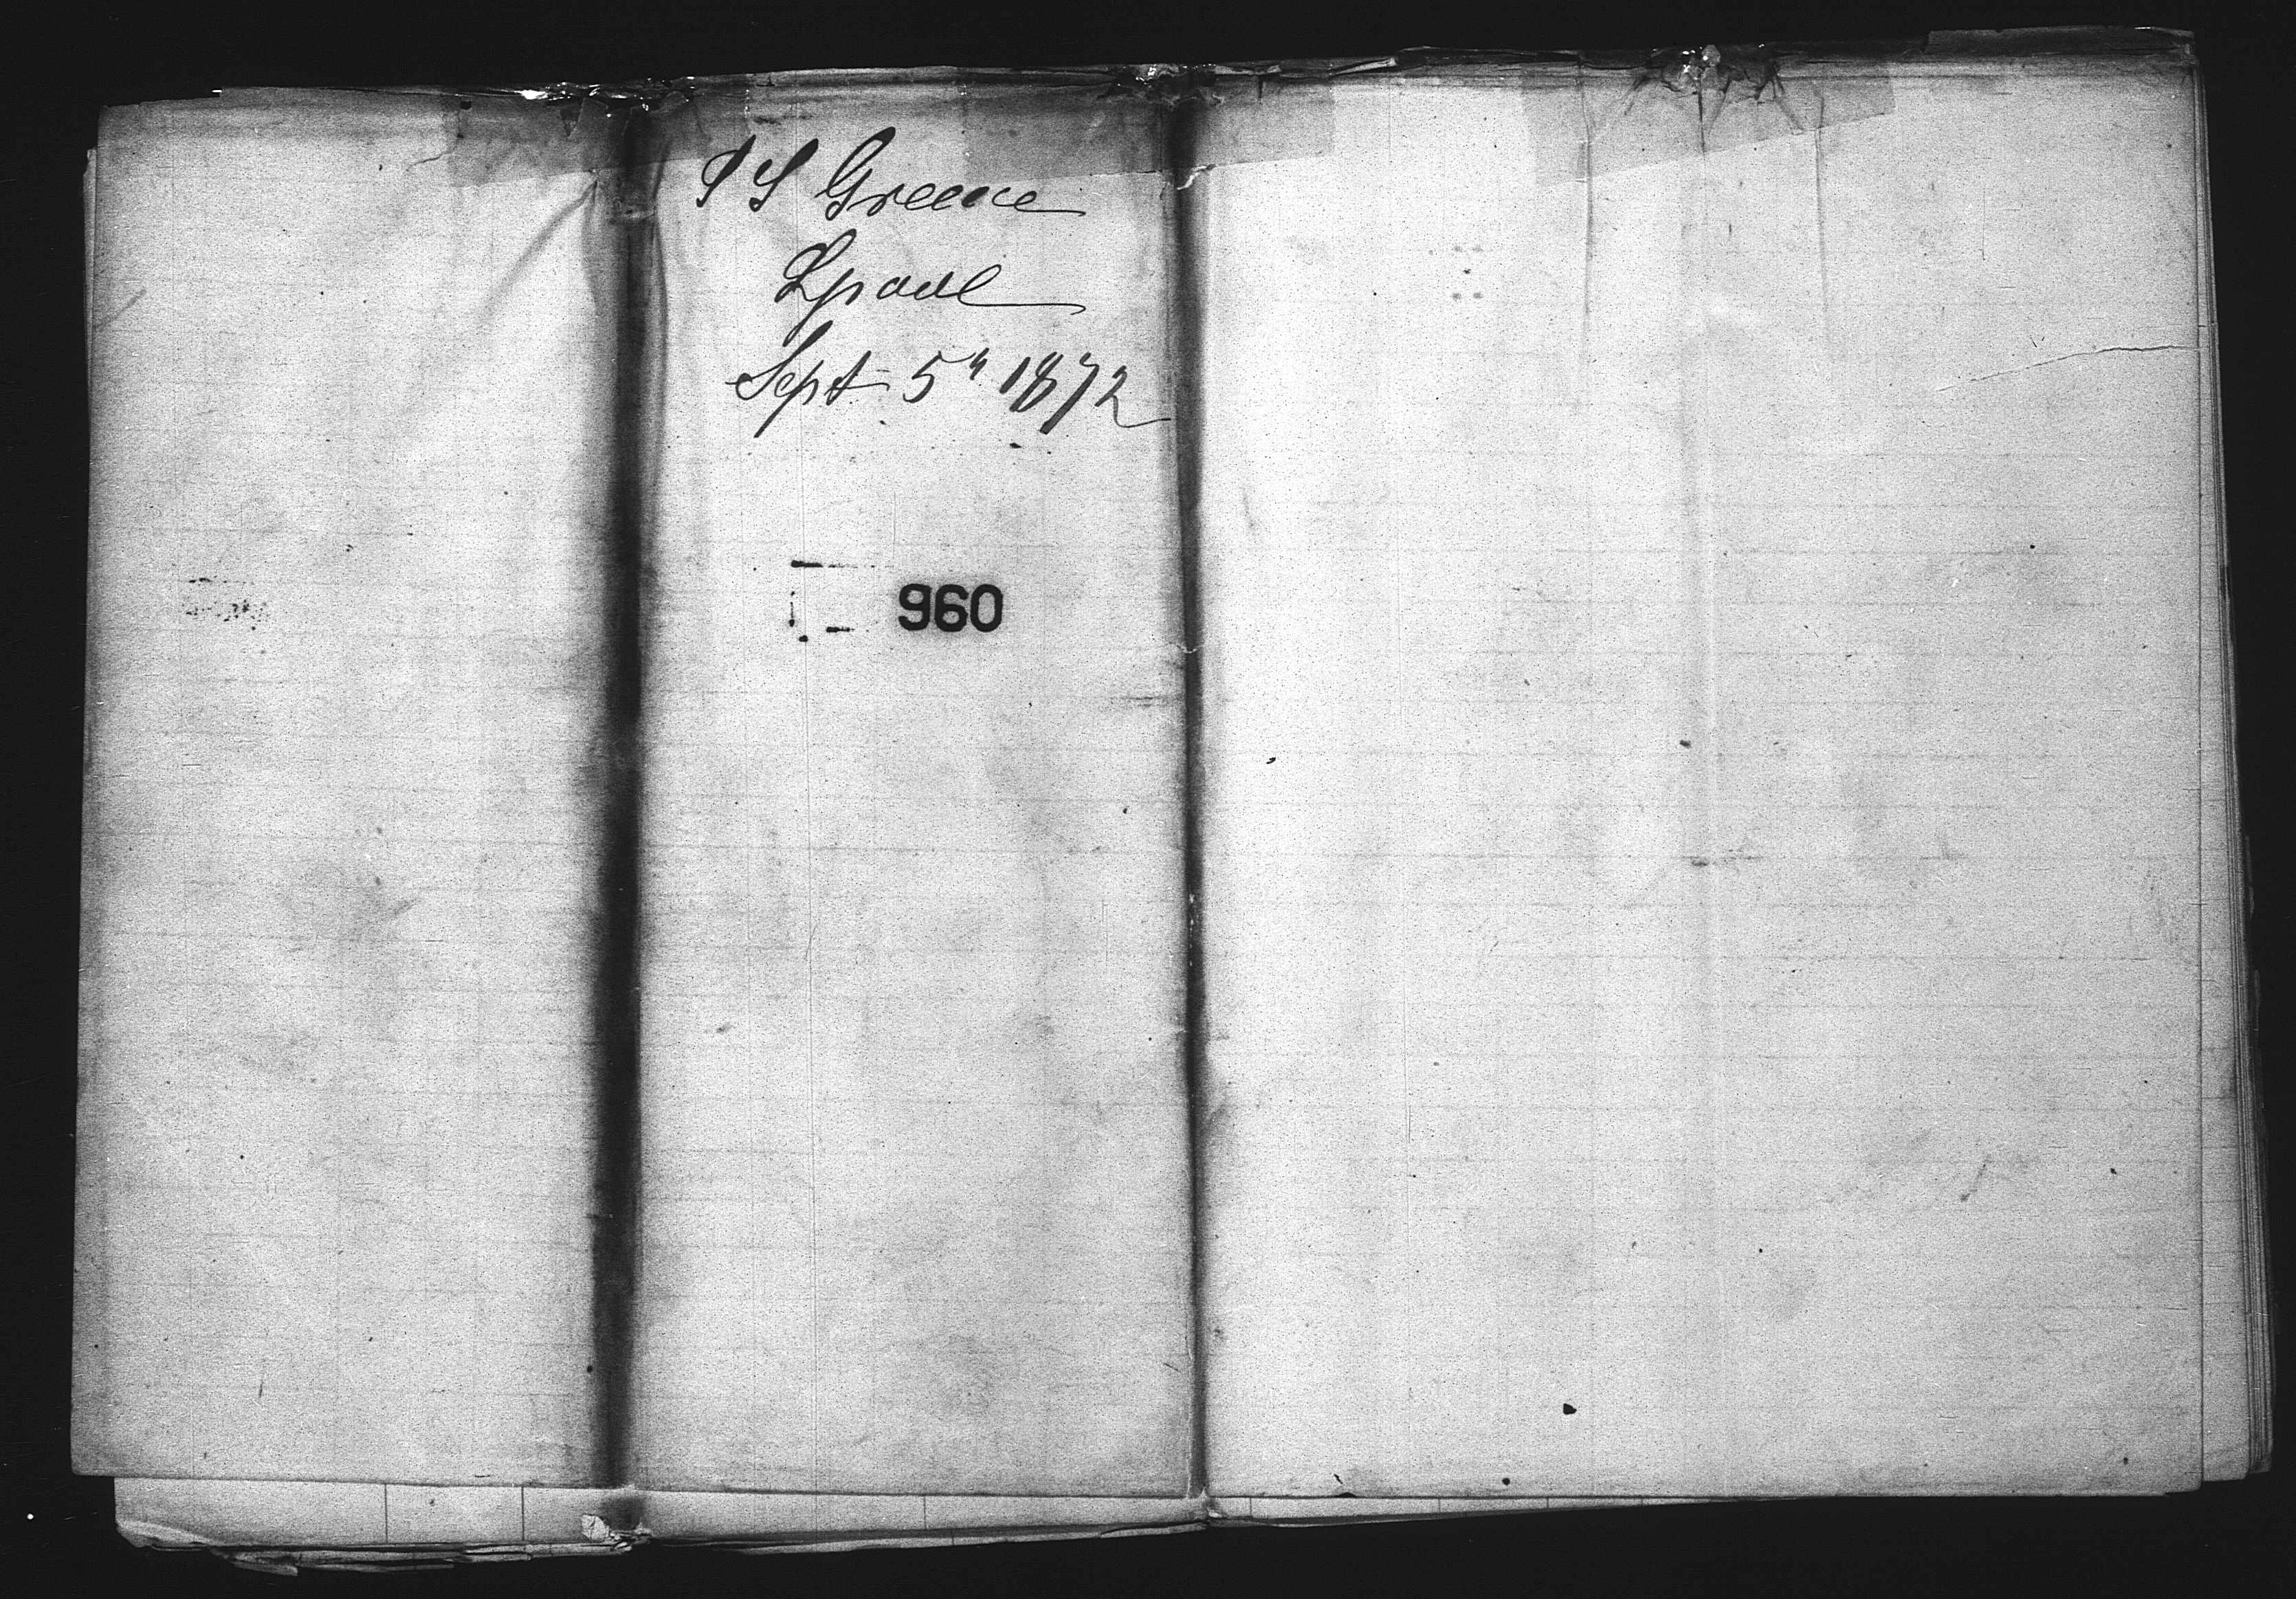 SS Greece
Lpool
Sept 5" 1872
960